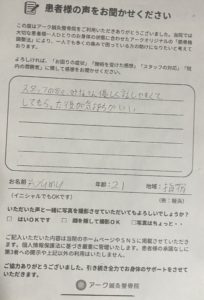 患者様の声をお聞かせください
この度はアーク鍼灸整骨院をご利用いただきありがとうございました。当院では
大切な患者様一人ひとりのお身体の状態に合わせたアークオリジナルの「
調整法」により、一人でも多くの痛みで困っている方の助けになりたいと考えて
おります。
よろしければ、「お困りの症状」「施術を受けた感想」「スタッフの対応」「院
内の雰囲気」に関して感想をお聞かせください。
スタッフの方と
してもらった後が気持ちがいい。
お名前
年齢:21
地域:
(イニシャルでもOKです)
いただいた声と一緒に写真を撮影させていただいてもよろしいでしょうか?
はいOKです
顔を隠して撮影OK
写真はちょっと・・
ご記入いただいた内容は当院のホームページやSNSに掲載させていただき
ます。個人情報保護法に基づき厳重に管理いたします。患者様の承諾なしに
第3者への開示や上記以外の利用はいたしません。
ご協力ありがとうございました。引き続き全力でお身体のサポートをさせて
いただきます。
アーク鍼灸整骨院